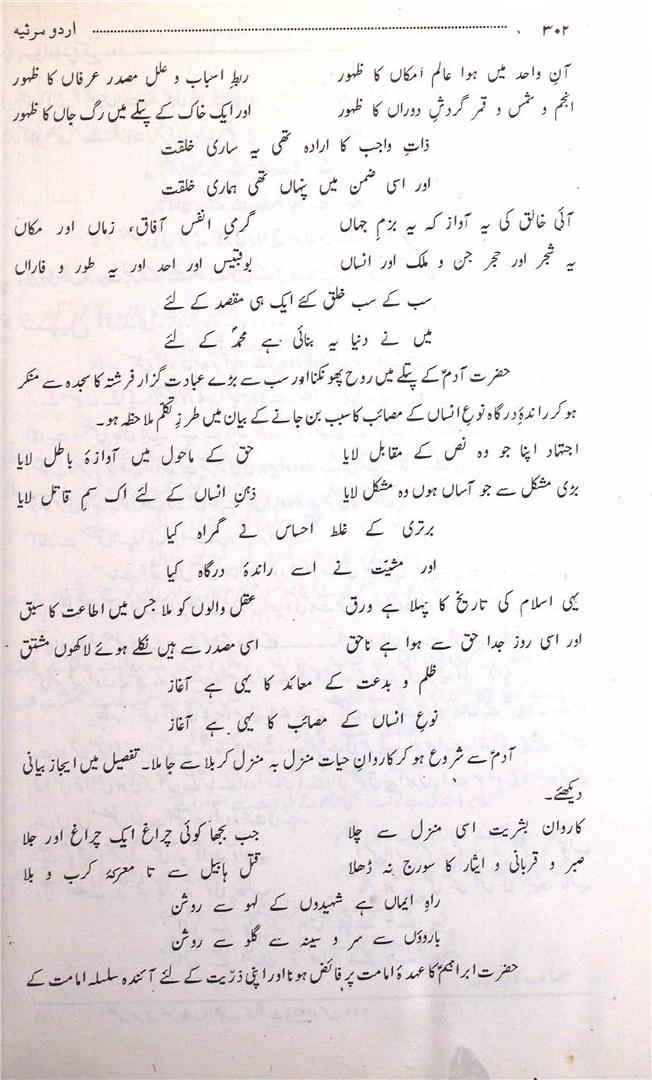 ۳۰۲ اردو مرثیہ
آنِ واحد میں ہوا عالم امکاں کا ظہور ربطِ اسباب و علل مصدر عرفاں کا ظہور
انجم و شمس و قمر گردشِ دوراں کا ظہور اور ایک خاک کے پتلے میں رگ جاں کا ظہور
ذاتِ واجب کا ارادہ تھی یہ ساری خلقت
اور اسی ضمن میں پنہاں تھی ہماری خلقت
آئی خالق کی یہ آواز کہ یہ بزمِ جہاں گرمیِ انفس آفاق، زماں اور مکاں
یہ شجر اور حجر جن و ملک اور انساں بوقبیس اور احد اور یہ طور و فاراں
سب کے سب خلق کئے ایک ہی مقصد کے لئے
میں نے دنیا یہ بنائی ہے محمدؐ کے لئے
حضرت آدمؑ کے پتلے میں روح پھونکنا اور سب سے بڑے عبادت گزار فرشتہ کا سجدہ سے منکر
ہو کر راندۂ درگاہ نوعِ انساں کے مصائب کا سبب بن جانے کے بیان میں طرزِ تکلّم ملاحظہ ہو۔
اجتہاد اپنا جو وہ نص کے مقابل لایا حق کے ماحول میں آوازۂ باطل لایا
بڑی مشکل سے جو آساں ہوں وہ مشکل لایا ذہنِ انساں کے لئے اک سمِ قاتل لایا
برتری کے غلط احساس نے گمراہ کیا
اور مشیّت نے اسے راندۂ درگاہ کیا
یہی اسلام کی تاریخ کا پہلا ہے ورق عقل والوں کو ملا جس میں اطاعت کا سبق
اور اسی روز جدا حق سے ہوا ہے ناحق اسی مصدر سے ہیں نکلے ہوئے لاکھوں مشتق
ظلم و بدعت کے معائد کا یہی ہے آغاز
نوعِ انساں کے مصائب کا یہی ہے آغاز
آدمؑ سے شروع ہو کر کاروانِ حیات منزل بہ منزل کربلا سے جا ملا۔ تفصیل میں ایجاز بیانی
دیکھئے۔
کاروان بشریت اسی منزل سے چلا جب بجھا کوئی چراغ ایک چراغ اور جلا
صبر و قربانی و ایثار کا سورج نہ ڈھلا قتل ہابیل سے تا معرکۂ کرب و بلا
راہِ ایماں ہے شہیدوں کے لہو سے روشن
بازوؤں سے سر و سینہ سے گلو سے روشن
حضرت ابراہیمؑ کا عہدۂ امامت پر فائض ہونا اور اپنی ذرّیت کے لئے آئندہ سلسلہ امامت کے